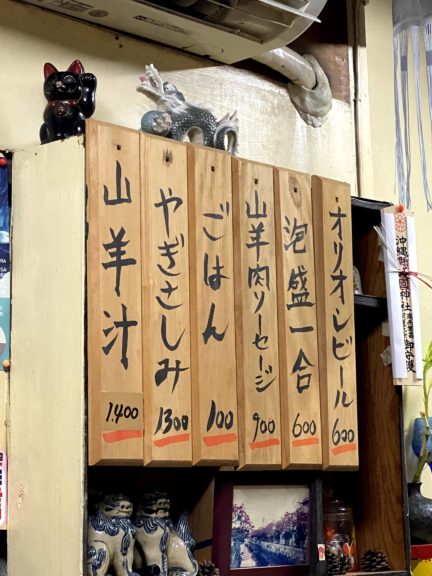 オリオンビール
600
泡盛一合
600
山羊肉ソーセージ
900
ごはん
100
やぎさしみ
1300
山羊汁
1.400